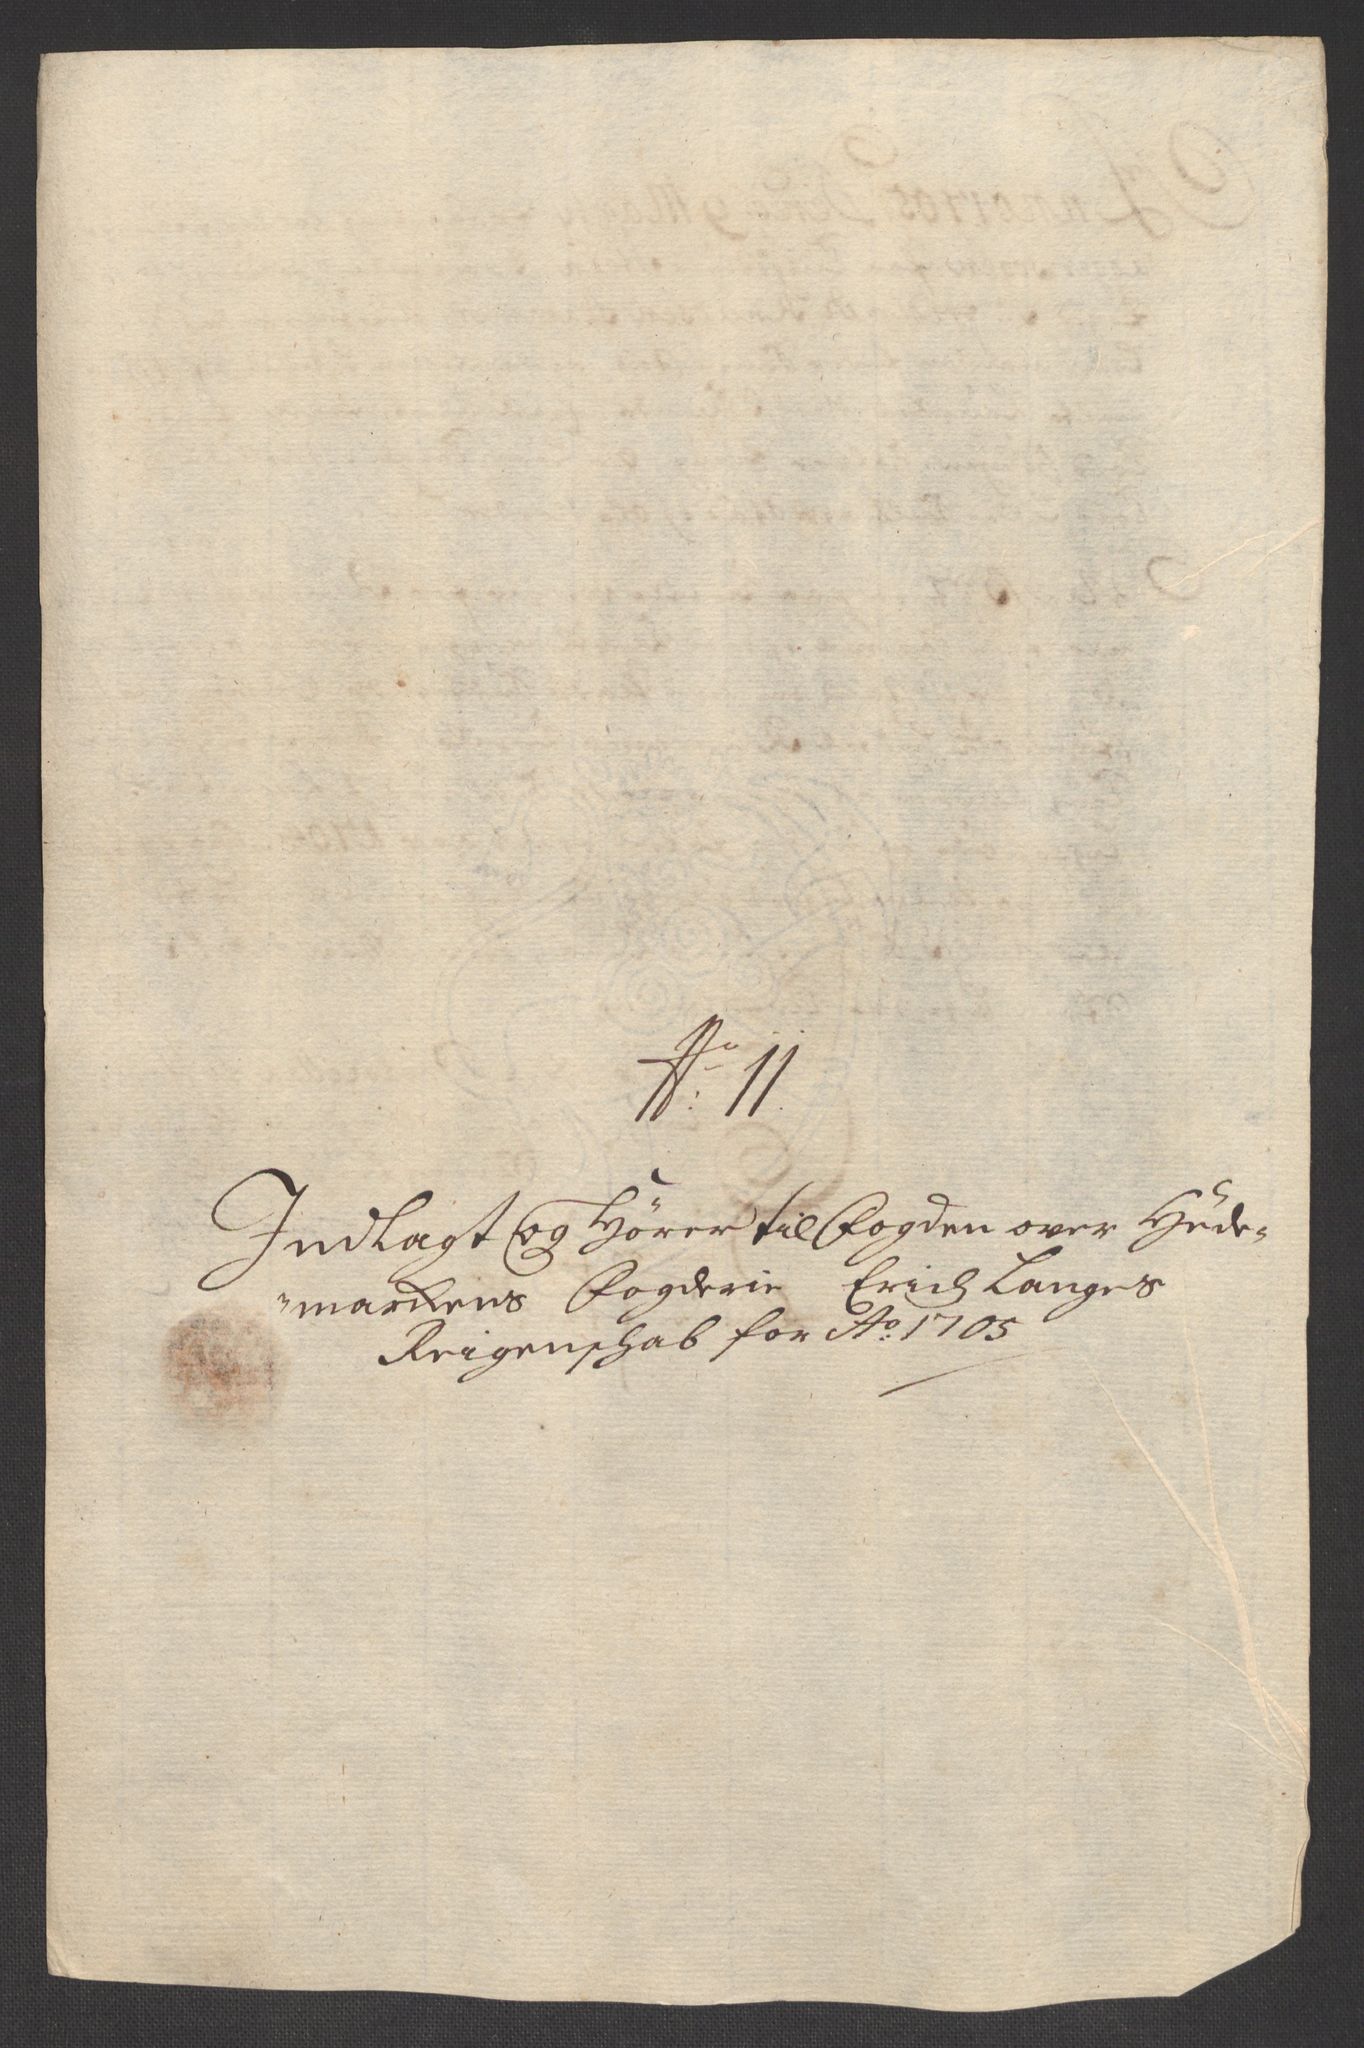 No: 11.
Indlagt og Hörer til Fogden over Hede-
-marchens Fogderie Erich Langes
Reigenschab for Ao: 1705